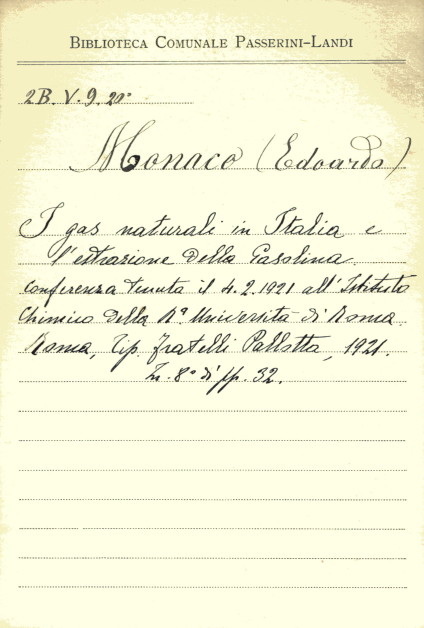 BIBLIOTECA COMUNALE PASSERINI-LANDI
2B. V. 9. 20°
Monaco (Edoardo)
I gas naturali in Italia e
l'estrazione della Gasolina.
Conferenza tenuta il 4.2.1921 all'Istituto
Chimico della Rª Università di Roma.
Roma, Tip. Fratelli Pallotta, 1921.
In 8° di pp. 32.